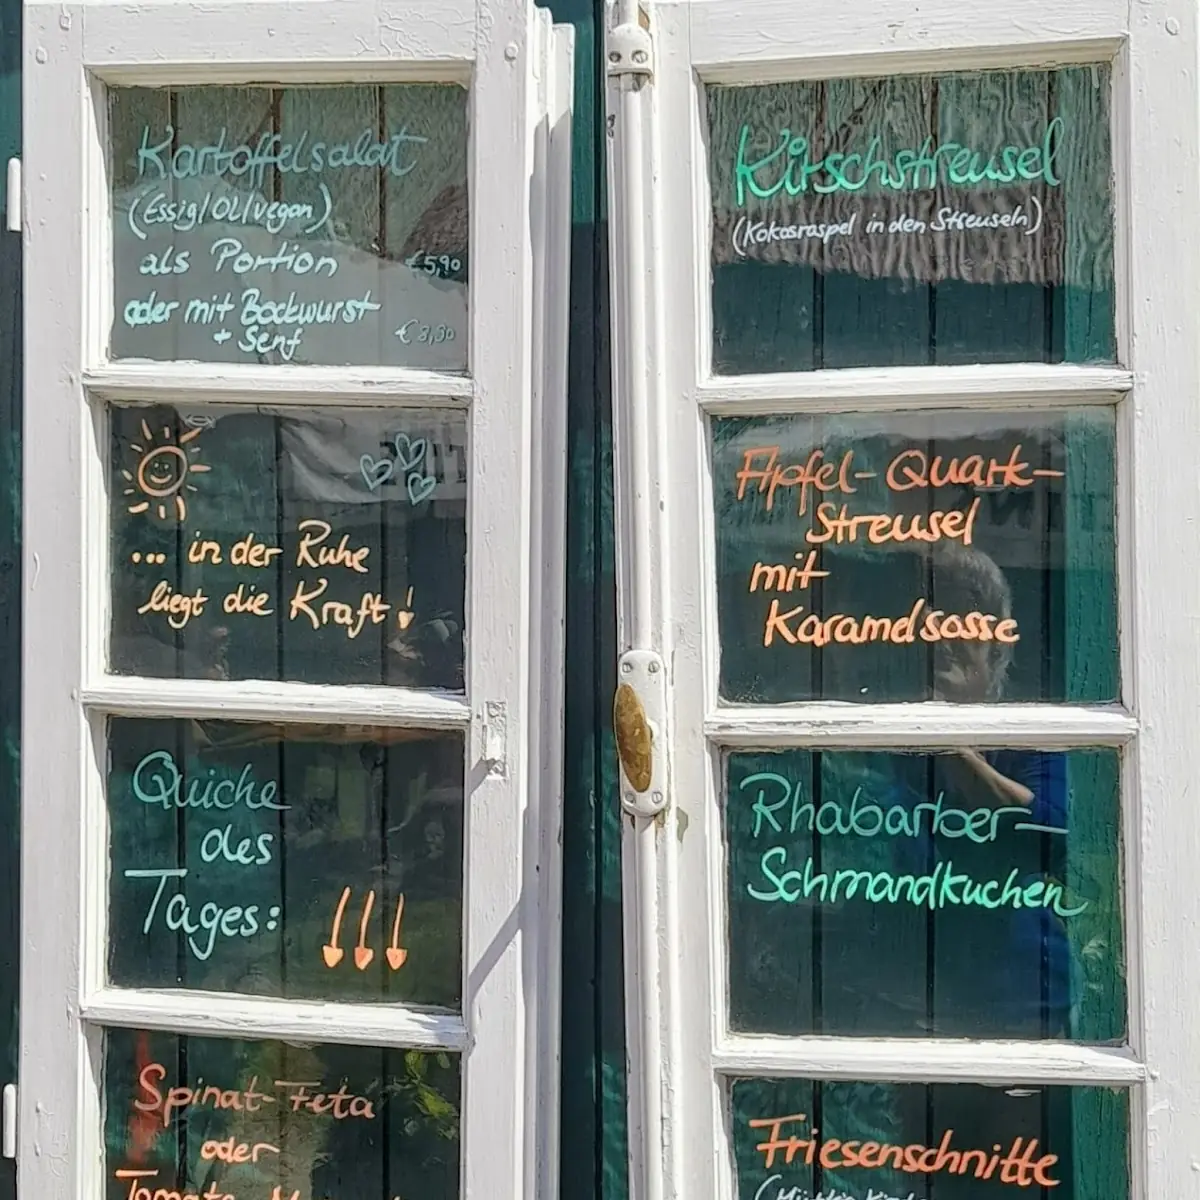 Kartoffelsalat
(Essig/Öl/vegan)
als Portion €5,90
oder mit Bockwurst
+ Senf
... in der Ruhe
liegt die Kraft!
Quiche
des
Tages:
Spinat-Feta
oder
Kirschstreusel
(Kokosraspel in den Streuseln)
Apfel-Quark-
Streusel
mit
Karamelsosse
Rhabarber-
Schmandkuchen
Friesenschnitte